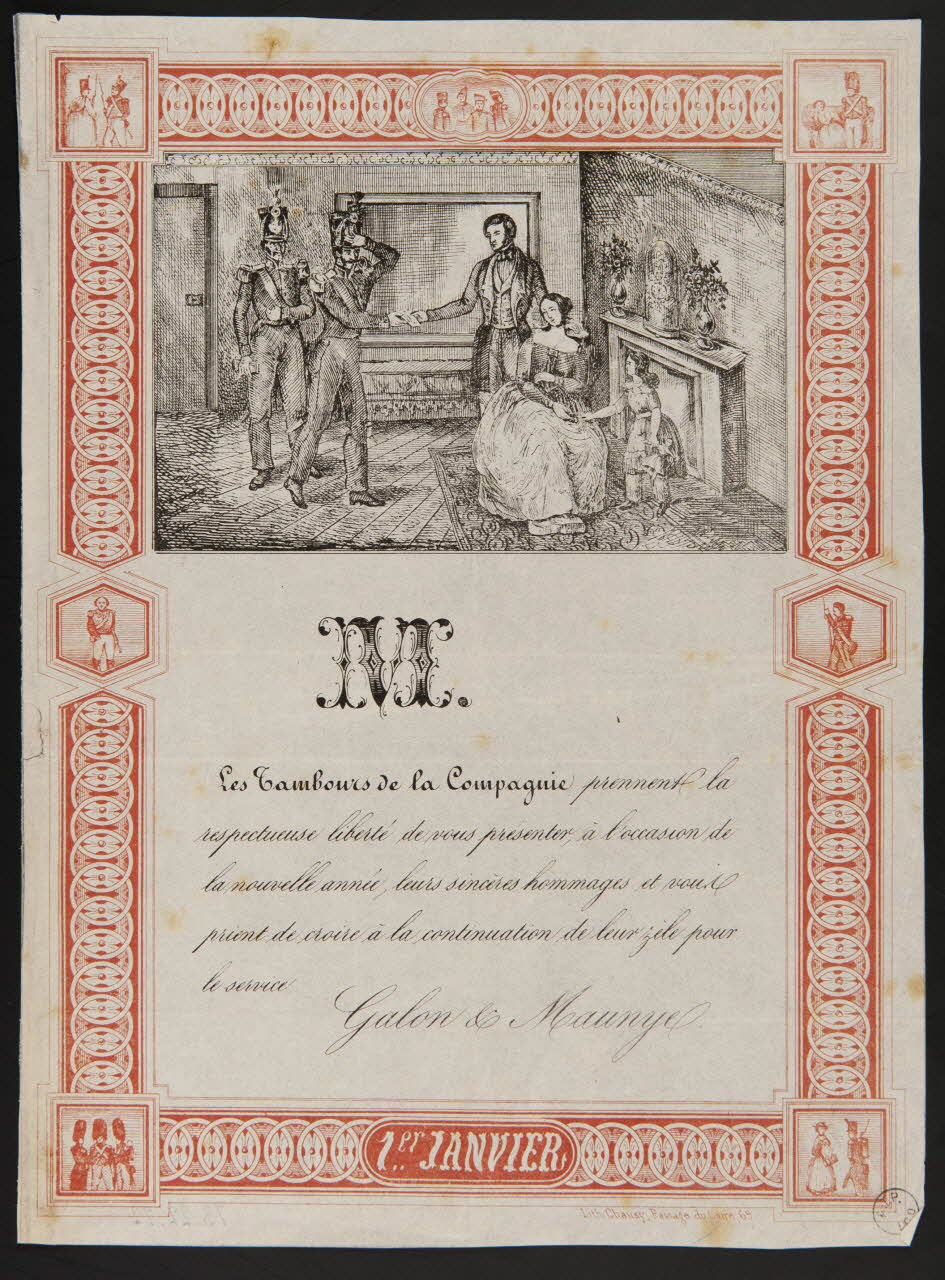 M.
Les Tambours de la Compagnie prennent la
respectueuse liberté de vous présenter, à l'occasion de
la nouvelle année, leurs sincères hommages et vous
prient de croire à la continuation de leur zèle pour
le service
Galon & Maunye.
1.er JANVIER.
Lith. Passage du Caire 69